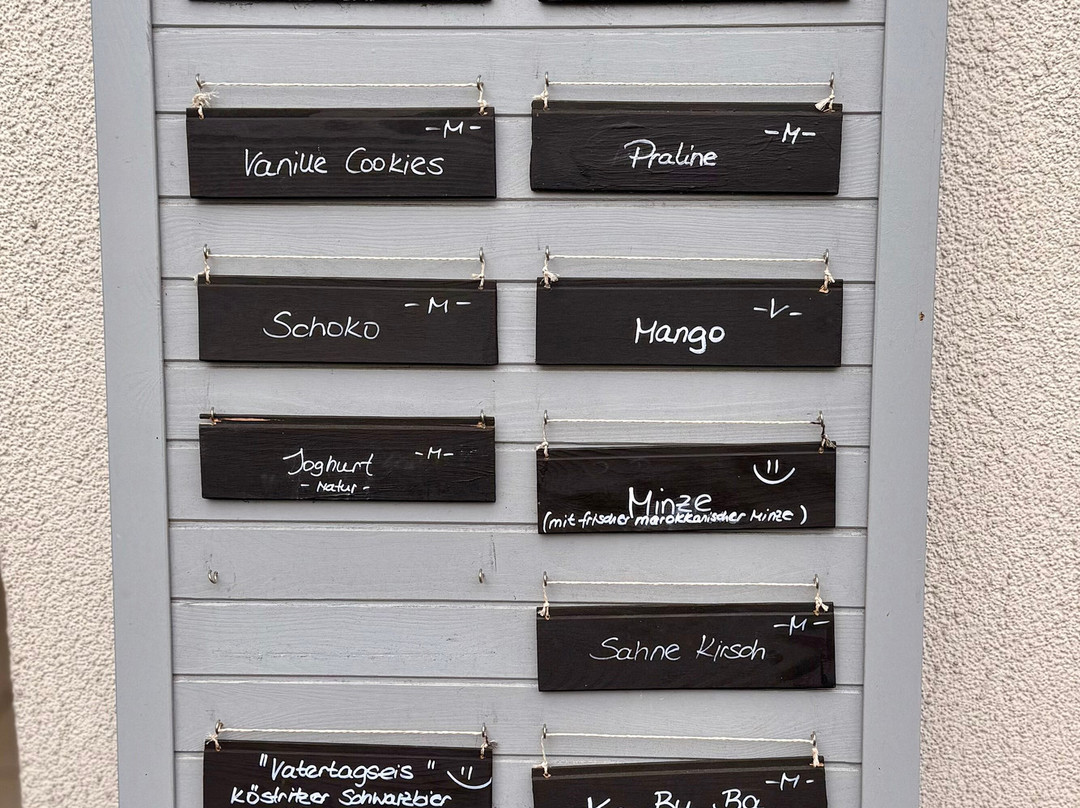 -M-
Vanille Cookies
-M-
Praline
-M-
Schoko
-V-
Mango
Joghurt -M-
- Natur -
Minze
(mit frischer marokkanischer Minze)
-M-
Sahne Kirsch
"Vatertagseis"
Köstritzer Schwarzbier
-M-